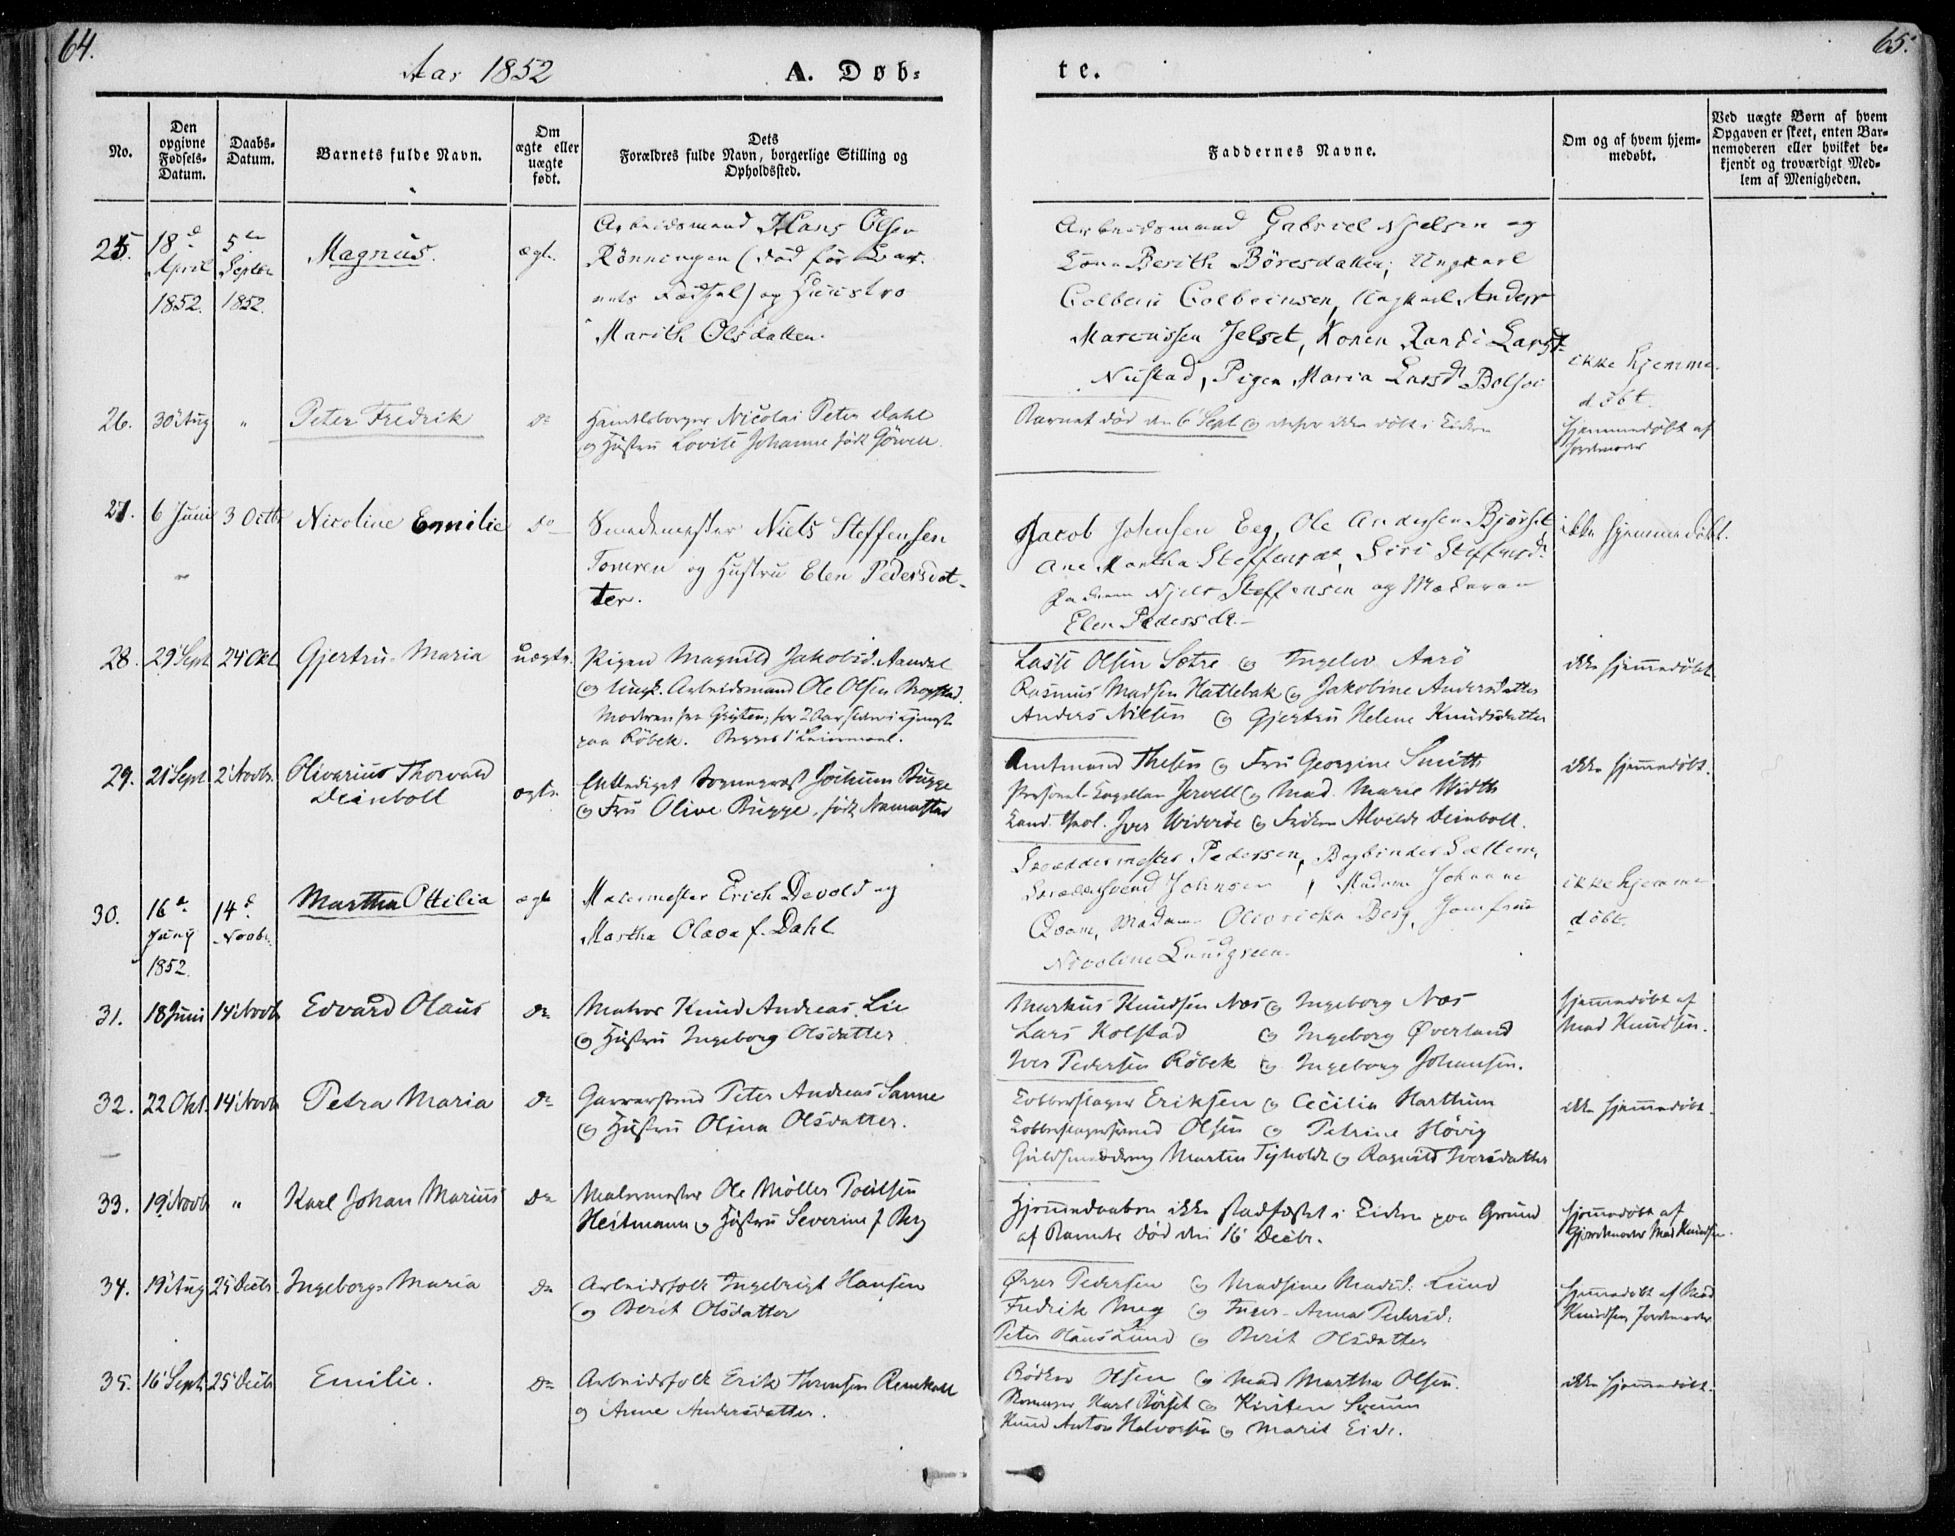 64.
Aar 1852
A. Døb-
te.
65.
No.
Den opgivne Fødsels-Datum.
Daabs-Datum.
Barnets fulde Navn.
Om ægte eller uægte født.
Dets Forældres fulde Navn, borgerlige Stilling og Opholdssted.
Faddernes Navne.
Om og af hvem hjem-medøbt.
Ved uægte Børn af hvem Opgaven er skeet, enten Bar-nemoderen eller hvilket be-kjendt og troværdigt Med-lem af Menigheden.
25. 18d April 1852. 5te Septbr 1852. Magnus. ægte
Arbeidsmand Hans Olsen
Rönningen (död för Bar-
nets Födsel) og Hustro
Marith Olsdatter.
Arbeidsmand Gabriel Njelsen og
Kona Berith Böresdatter, Ungkarl
Colbein Colbeinsen, Ungkarl Anders
Marcussen Jelset, Konen Randi Larsd.
Nustad, Pigen Maria Larsd. Bolsöe
ikke hjemme
döbt.
26. 30 Aug " Peter Fredrik do
Handelsborger Nicolai Peter Dahl
og Hustru Lovise Johanne födt Görvell
Barnet död den 6 Sept og derfor ikke döbt i Kirken
Hjemmedöbt af
Jordmoder
27. 6 Juni 3 Octbr Nicoline Emilie do
Smedemester Niels Steffensen
Tomren og Hustru Elen Pedersdot-
ter.
Jacob Johnsen Eeg, Ole Andersen Bjørset,
Ane Martha Steffensdt, Siri Steffensdt.
Faderen Njels Steffensen og Moderen
Elen Pedersdt.
ikke hjemmedöbt.
28. 29 Sept 24 Okt Gjertru Maria uægte.
Pigen Magnild Jakobsd. Aandal
og Ungk. Arbeidsmand Ole Olsen Bogstad.
Moderen fra Grytten, for 2 Aar siden i tjeneste
paa Röbek. Begges 1 Leiermaal.
Lasse Olsen Sætre og Ingelev Aarö
Rasmus Madsen Hattebak og Jakobine Andersdatter
Anders Nilsen og Gjertru Helene Knudsdatter
ikke hjemmedöbt.
29. 21 Sept 2 Novbr. Olivarius Thorvald
Deinboll ægte
Entlediget Sogneprest Jochum Bugge
og Fru Olive Bugge, födt Hammstad
Amtmand Thesen og Fru Georgine Smith
Personel Kapellan Jervell og Mad. Marie Width
Kand. theol. Iver Wideröe og Frøken Alvilde Deinboll.
ikke hjemmedöbt.
30. 16d. Juny 1852. 14d. Novbr. Martha Ottilia ægte
Malermester Erich Devold og
Martha Olava f. Dahl
Skreddermester Pedersen, Bogbinder Sættem,
Skredersvend Johnsen, Madame Johanne
Qvam, Madame Olivricka Berg, Jomfrue
Nicoline Lundgreen.
ikke hjemme
döbt.
31. 18 Juni 14 Novbr Edvard Olaus do
Matros Knud Andreas Lie
og Hustru Ingeborg Olsdatter
Markus Knudsen Næs og Ingeborg Næs
Lars Kolstad og Ingeborg Øverland
Iver Pedersen Röbek og Ingeborg Johansen.
Hjemmedöbt af
Mad Knudsen.
32. 22 Okt. 14 Novbr Petra Maria do
Garversvend Peter Andreas Sanne
og Hustru Oline Olsdatter.
Kobberslager Eriksen og Cecilia Harthum
Kobberslagersvend Olsen og Petrine Hövig
Guldsmeddreng Martin Tyholdt og Ragnild Iversdatter
ikke hjemmedöbt.
33. 19 Novbr " Karl Johan Marius do
Malermester Ole Möller Poulsen
Heitmann og Hustru Severine f. Berg
Hjemmedaaben ikke stadfæstet i Kirken paa Grund
af Barnets död den 16 Decbr.
Hjemmedöbt af
Gjordemoder Mad Knudsen.
34. 19 Aug 25 Decbr. Ingeborg Maria do
Arbeidsfolk Ingebrigt Hansen
og Berit Olsdatter
Ørger Pedersen og Madsine Madsd. Lund
Fredrik Aueg og Inger-Anna Pedersd.
Peter Hans Lund og Berit Olsdatter
Hjemmedöbt af Mad
Knudsen Jordmoder
35. 16 Sept 25 Decbr Emilie. do
Arbeidsfolk Erik Thronsen Remkall
og Anne Andersdatter.
Bödker Olsen og Mad Martha Olsen.
Karl Rörset og Kirsten Sveum
Knud Anton Halvorsen og Marit Eide.
ikke hjemmedöbt.